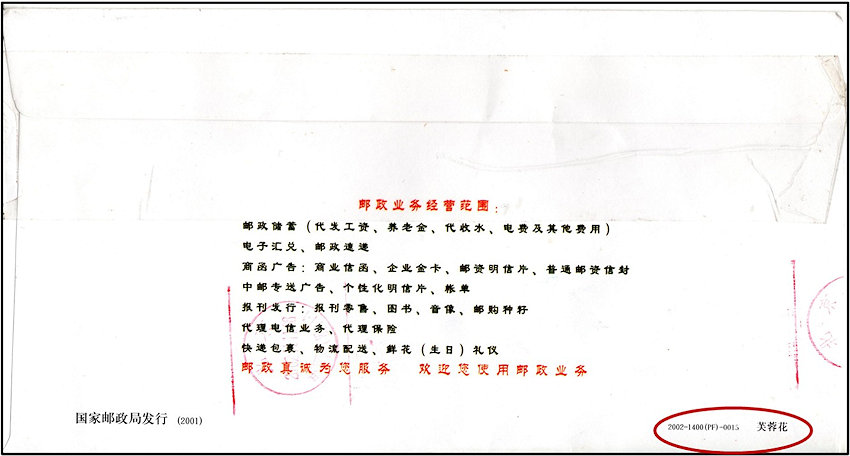 邮政业务经营范围：
邮政储蓄（代发工资、养老金、代收水、电费及其他费用）
电子汇兑、邮政速递
商函广告：商业信函、企业金卡、邮资明信片、普通邮资信封
中邮专送广告、个性化明信片、帐单
报刊发行：报刊零售、图书、音像、邮购种籽
代理电信业务、代理保险
快递包裹、物流配送、鲜花（生日）礼仪
邮政真诚为您服务 欢迎您使用邮政业务
国家邮政局发行 (2001)
2002-1400(PF)-0015 芙蓉花